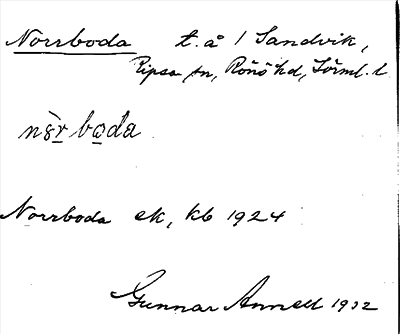 Norrboda t. å 1 Sandvik,
Ripsa sn, Rönö hd, Södml. l
Norrboda ek, kb 1924
Gunnar Annell 1932